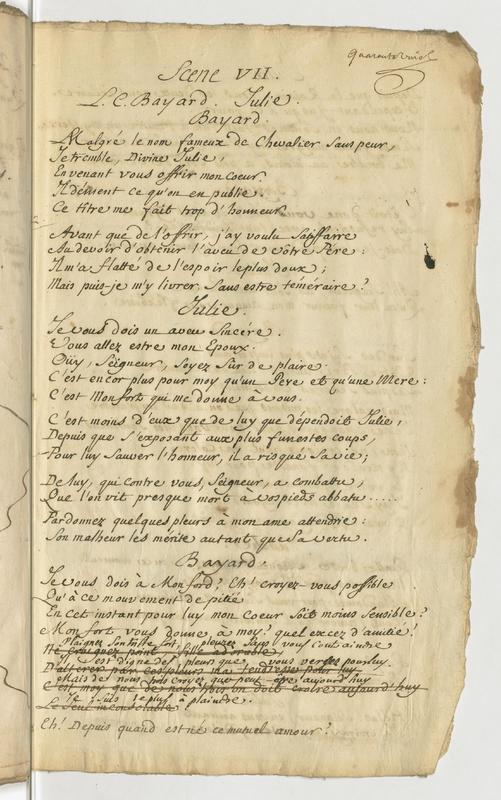 Scene VII.
L. C. Bayard. Julie.
Bayard.
Malgré le nom fameux de Chevalier sans peur,
Je tremble, Divine Julie,
En venant vous offrir mon coeur.
Il dément ce qu'on en publie.
Ce titre me fait trop d'honneur.
Avant que de l'offrir, j'ay voulu satisffaire
Au devoir d'obtenir l'aveu de vôtre Pere:
Il m'a flatté de l'espoir le plus doux;
Mais puis-je m'y livrer sans estre téméraire?
Julie.
Je vous dois un aveu sincére.
Vous allez estre mon Epoux.
Oüy, Seigneur, soyez sûr de plaire.
C'est encor plus pour moy qu'un Pere et qu'une Mere:
C'est Monfort qui me donne à vous.
C'est moins d'eux que de luy que dépendoit Julie,
Depuis que s'exposant aux plus funestes coups,
Pour luy sauver l'honneur, il a risqué sa vie;
De luy, qui contre vous, Seigneur, a combattu,
Que l'on vit presque mort a vos pieds abbatu.....
Pardonnez quelques pleurs à mon ame attendrie:
Son malheur les mérite autant que sa vertu.
Bayard.
Je vous dois à Monford? Eh! croyez-vous possible
Qu'à ce mouvement de pitié
En cet instant pour luy mon coeur soit moins sensible?
Monfort vous donne, à moy? quel excez d'amitié!
Plaignez son triste sort, pleurez sans vous contraindre
Ne craignez point
Il est digne des pleurs que vous versez pour luy.
mais de nous trois croyez que peut estre aujourd'huy
C'est moy que de nous on doit croire aujourd'huy
Je suis le plus à plaindre.
Le seul inconsolable
Eh! Depuis quand est né ce mutuel amour?